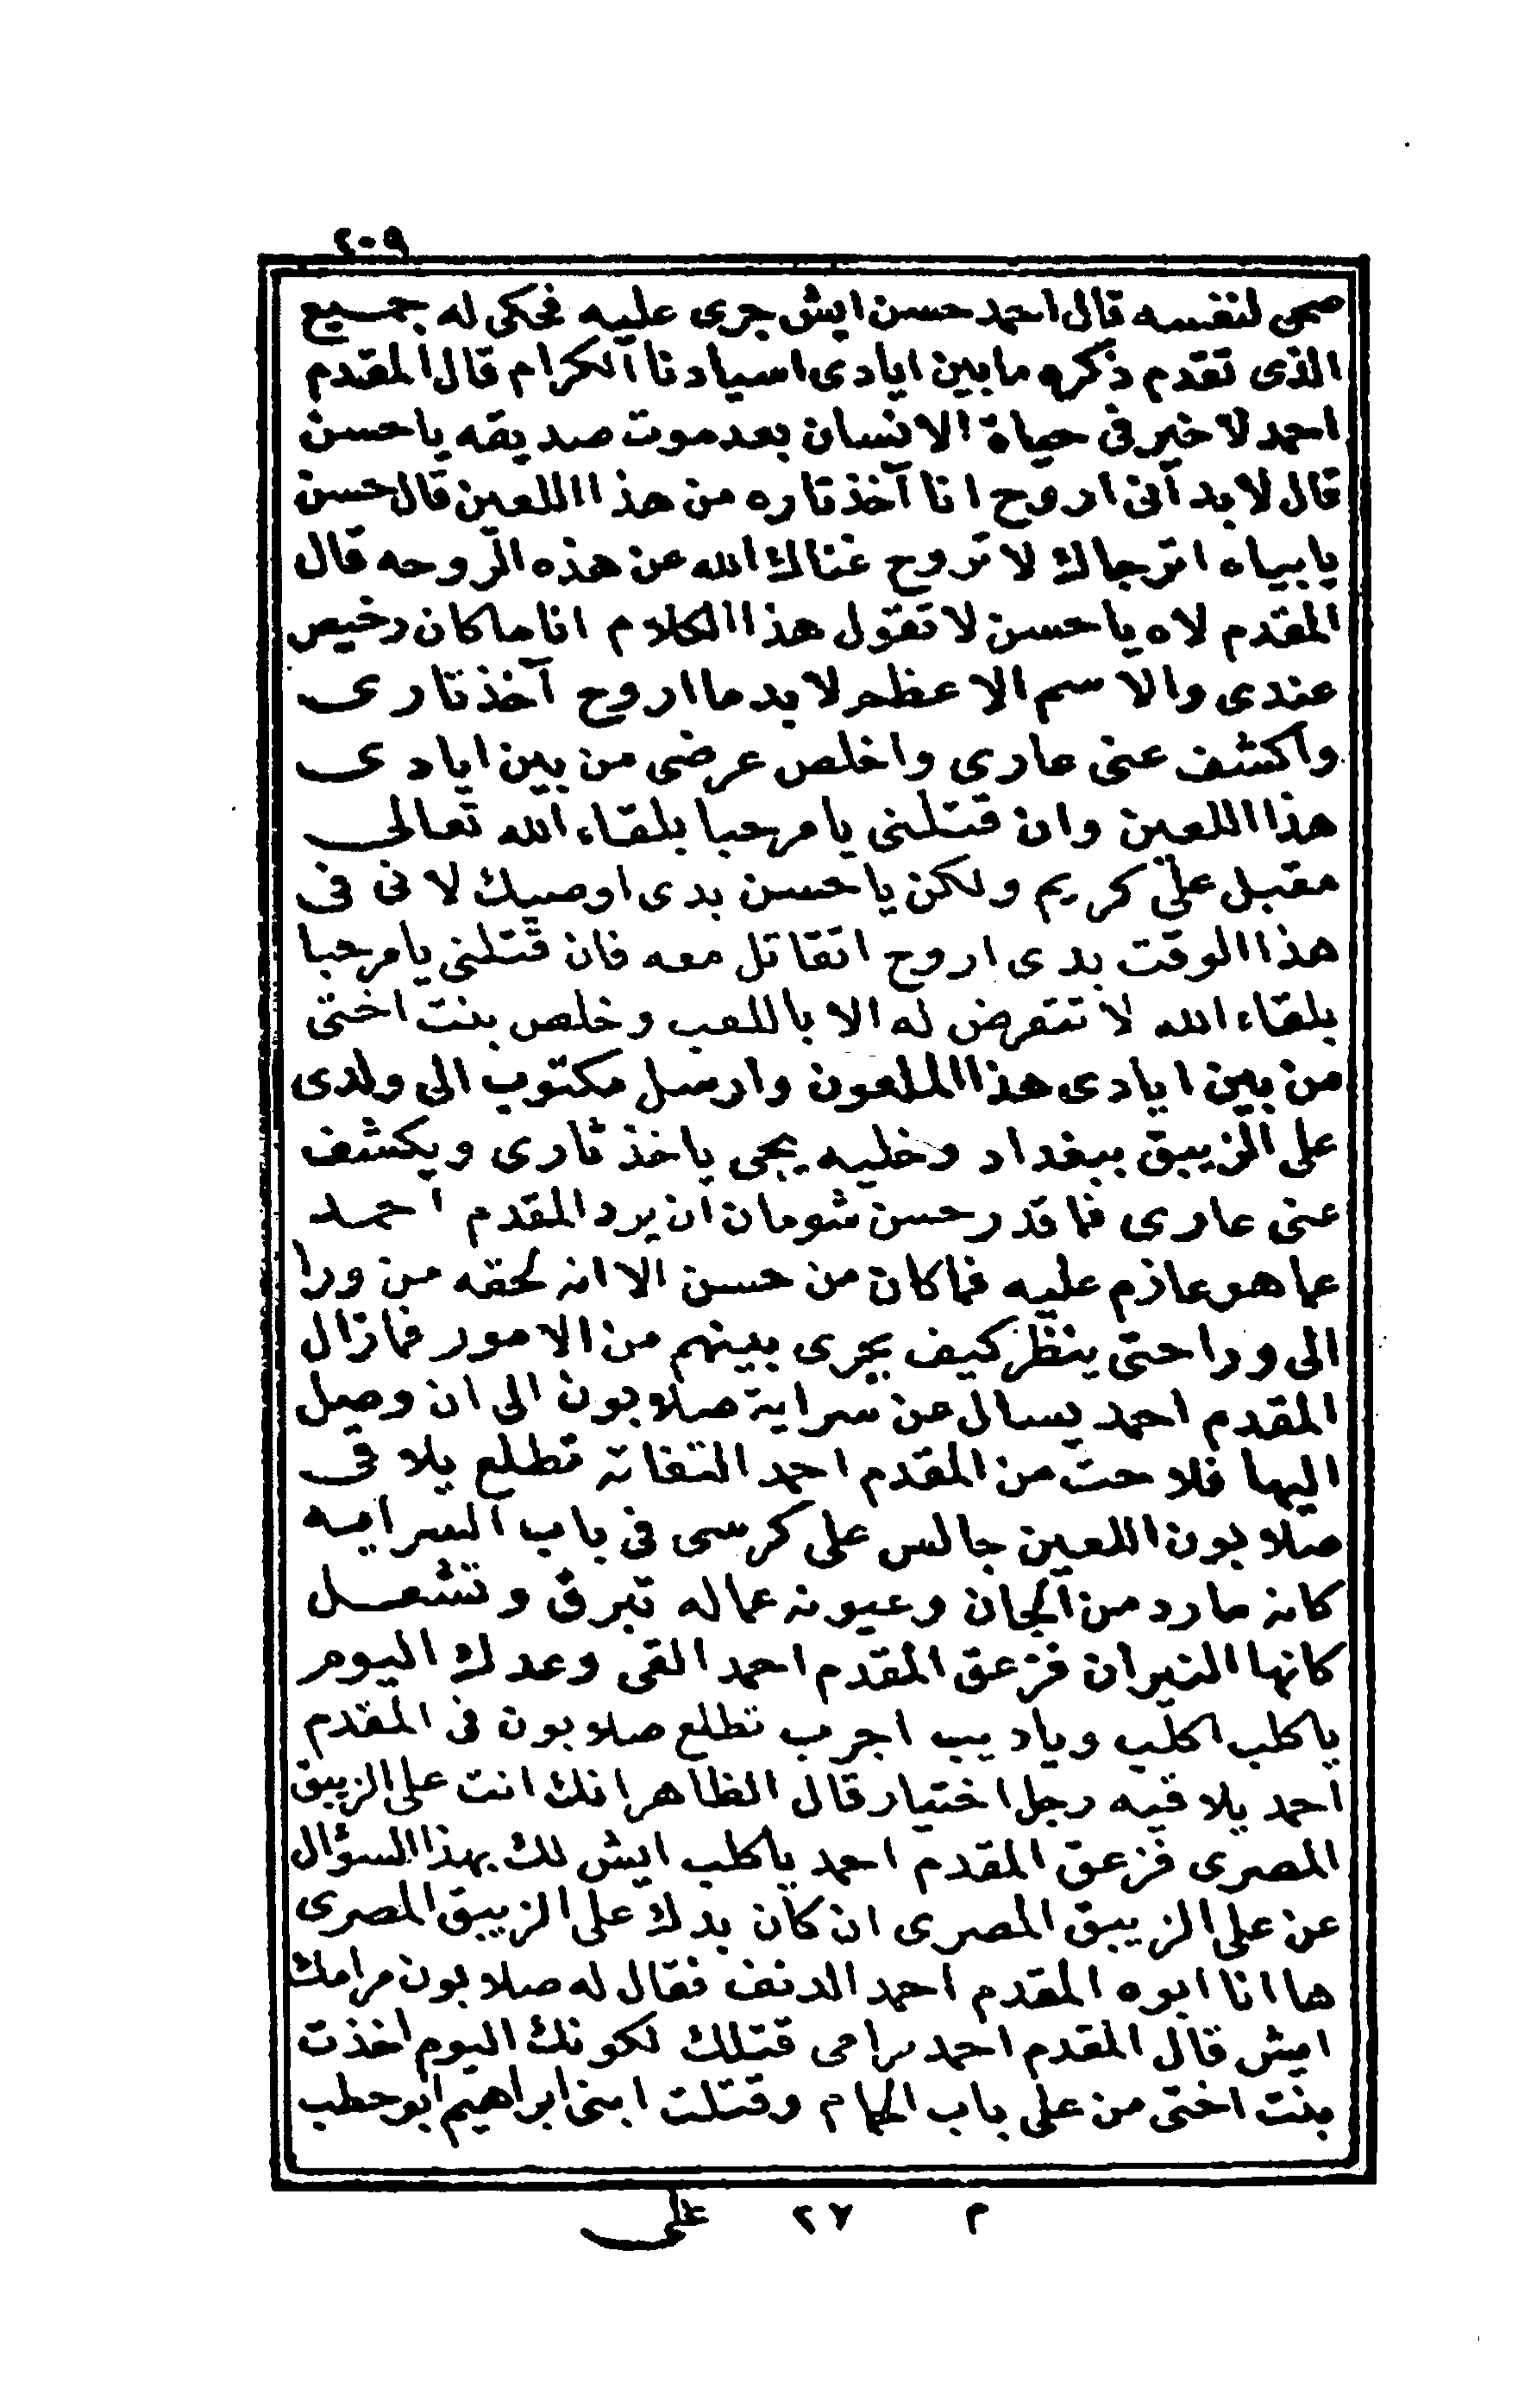 ٢٠٩
صحى لنفسه قال احمد حسن ايش جرى عليه فحكى له جميع
الذى تقدم ذكره ما بين ايادى اسيادنا الكرام قال المقدم
احمد لا خير فى حياة الانسان بعد موت صديقه يا حسن
قال لا بد انى اروح انا آخذ تاره من هذا اللعين قال حسن
يا بياه اترجاك لا تروح غناك الله عن هذه الروحه قال
المقدم لاه يا حسن لا تقول هذا الكلام انا ما كان رخيص
عندى والاسم الاعظم لا بد ما اروح آخذ تارى
واكشف عنى عارى واخلص عرضى من بين ايادى
هذا اللعين وان قتلنى يا مرحبا بلقاء الله تعالى
مقبل على كريم ولكن يا حسن بدى اوصيك لانى فى
هذا الوقت بدى اروح اتقاتل معه فان قتلنى يا مرحبا
بلقاء الله لا تتعرض له الا باللعب وخلص بنت اختى
من بين ايادى هذا الملعون وارسل مكتوب الى ولدى
على الزيبق ببغداد وخليه يجى ياخذ ثارى ويكشف
عنى عارى فما قدر حسن شومان ان يرد المقدم احمد
عما هو عازم عليه فما كان من حسن الا انه لحقه من ورا
الى ورا حتى ينظر كيف يجرى بينهم من الامور فما زال
المقدم احمد يسال عن سراية صلابون الى ان وصل
اليها فلاحت من المقدم احمد التفاته تطلع يلاقى
صلابون اللعين جالس على كرسى فى باب السرايه
كانه مارد من الجان وعيونه عماله تبرق وتشعل
كانها النيران فزعق المقدم احمد القى وعدك اليوم
يا كلب اكلب ويا ديب اجرب تطلع صلابون فى المقدم
احمد يلاقيه رجل اختيار قال الظاهر انك انت على الزيبق
المصرى فزعق المقدم احمد يا كلب ايش لك بهذا السؤال
عن على الزيبق المصرى ان كان بدك على الزيبق المصرى
ها انا ابوه المقدم احمد الدنف فقال له صلابون مرامك
ايش قال المقدم احمد مرامى قتلك لكونك اليوم اخذت
بنت اختى من على باب الحمام وقتلت ابنى ابراهيم ابو حطب
م ٢٧ على